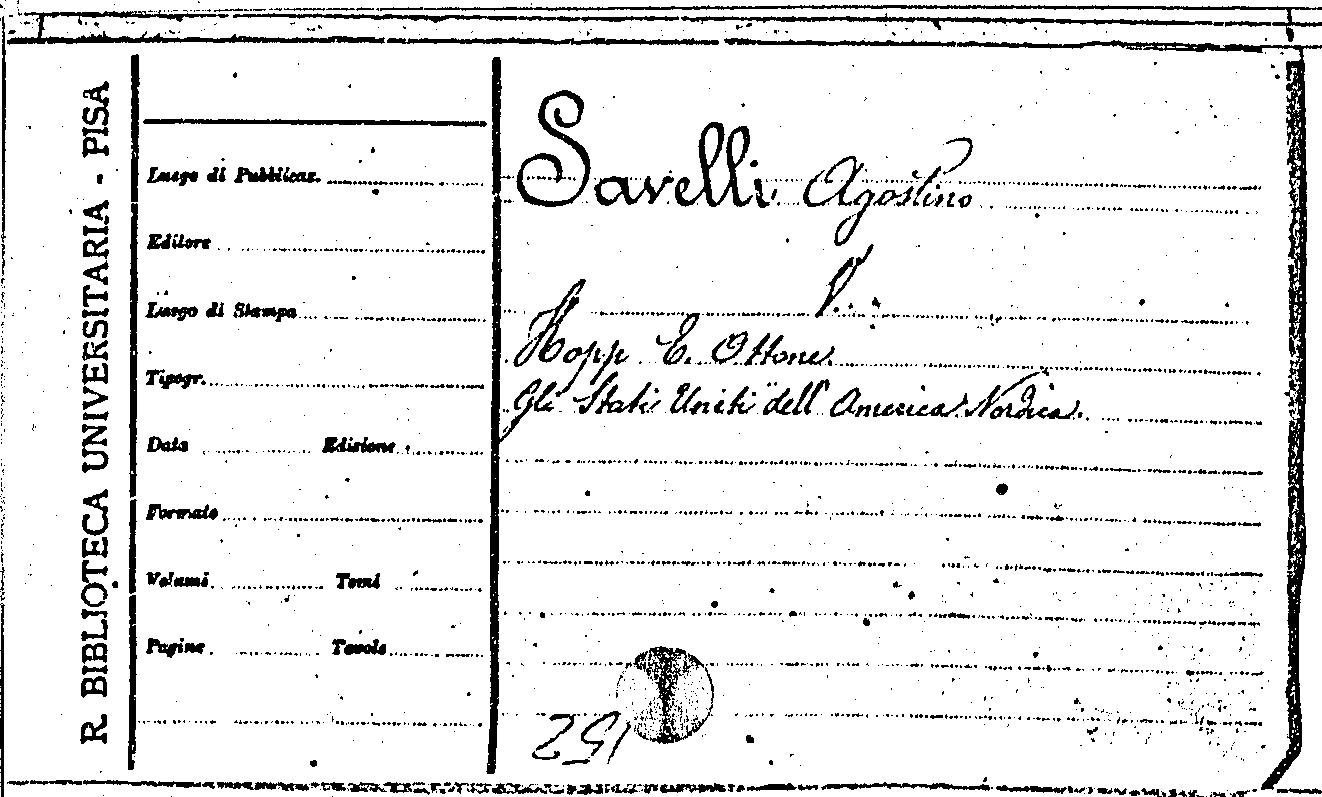 R. BIBLIOTECA UNIVERSITARIA - PISA
Luogo di Pubblicaz.
Editore
Luogo di Stampa
Tipogr.
Data Edizione
Formato
Volumi Tomi
Pagine Tavole
Savelli Agostino
V.
Hopp E. Ottone.
Gli Stati Uniti dell'America Nordica.
152